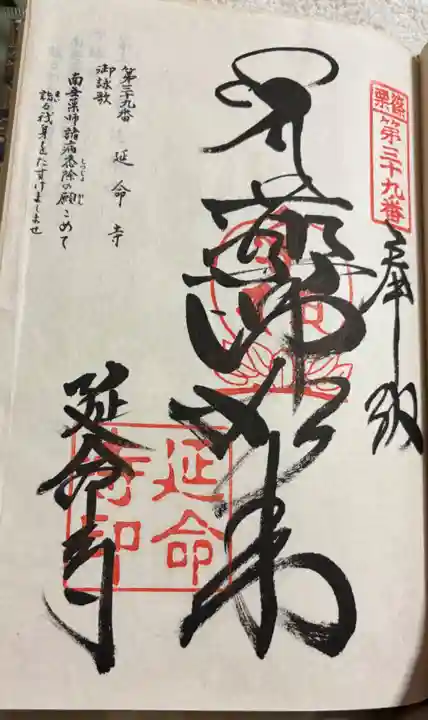 篠栗
第三十九番
奉拝
薬師如来
延命寺
延命寺印
第三十九番 延命寺
御詠歌
南無薬師諸病悉除の願こめて
詣る我身をたすけましませ